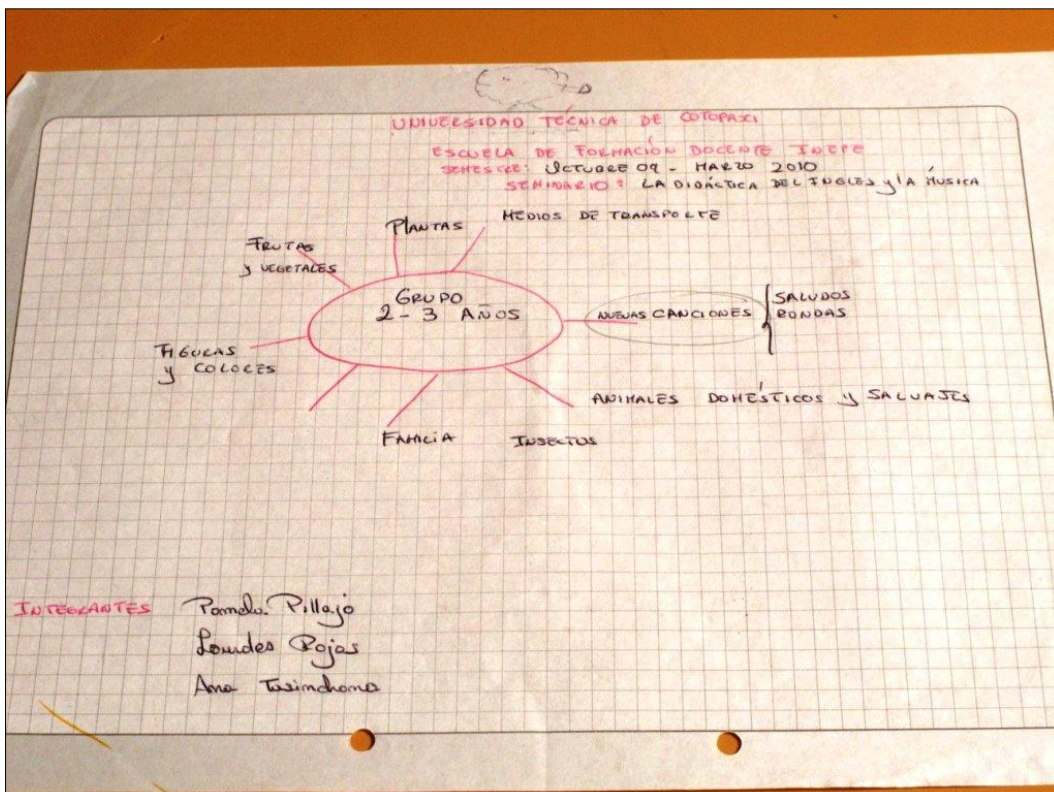 UNIVERSIDAD TÉCNICA DE COTOPAXI
ESCUELA DE FORMACIÓN DOCENTE INEPE
SEMESTRE: OCTUBRE 09 - MARZO 2010
SEMINARIO: LA DIDÁCTICA DEL INGLES y LA MÚSICA
MEDIOS DE TRANSPORTE
PLANTAS
FRUTAS
y VEGETALES
GRUPO
2 - 3 AÑOS
NUEVAS CANCIONES
SALUDOS
RONDAS
FIGURAS
y COLORES
ANIMALES DOMÉSTICOS y SALVAJES
FAMILIA
INSECTOS
INTEGRANTES
Pamela Pillajo
Lourdes Rojas
Ana